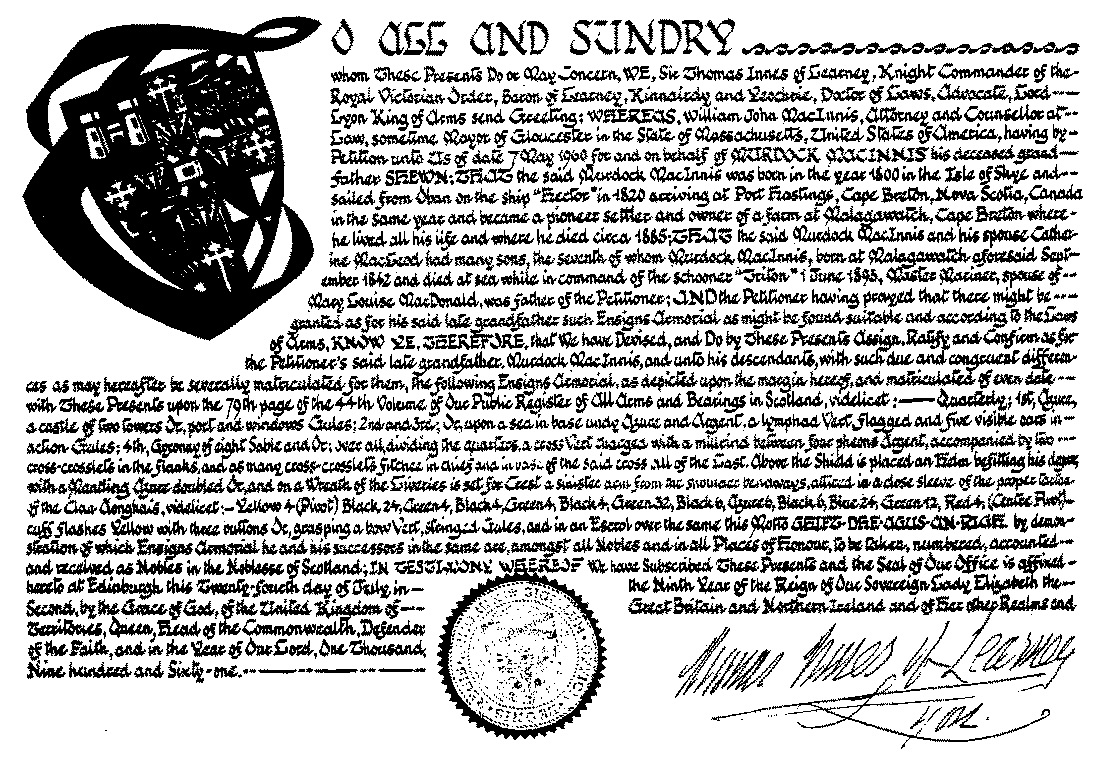 O ALL AND SUNDRY
whom These Presents Do or May Concern, WE, Sir Thomas Innes of Learney, Knight Commander of the
Royal Victorian Order, Baron of Learney, Kinnairdy and Yeochrie, Doctor of Laws, Advocate, Lord
Lyon King of Arms send Greeting: WHEREAS, William John MacInnis, Attorney and Counsellor at
Law, sometime Mayor of Gloucester in the State of Massachusetts, United States of America, having by
Petition unto Us of date 7 May 1960 for and on behalf of MURDOCK MACINNIS his deceased grand
father SHEWN; THAT the said Murdock MacInnis was born in the year 1800 in the Isle of Skye and
sailed from Oban on the ship "Hector" in 1820 arriving at Port Hastings, Cape Breton, Nova Scotia, Canada
in the same year and became a pioneer settler and owner of a farm at Malagawatch, Cape Breton where
he lived all his life and where he died circa 1885; THAT the said Murdock MacInnis and his spouse Cather-
ine MacLeod had many sons, the seventh of whom Murdock MacInnis, born at Malagawatch aforesaid Sept-
ember 1842 and died at sea while in command of the schooner "Triton" 1 June 1895, Master Mariner, spouse of
Mary Louise MacDonald, was father of the Petitioner; AND the Petitioner having prayed that there might be
granted as for his said late grandfather such Ensigns Armorial as might be found suitable and according to the Laws
of Arms, KNOW YE, THEREFORE, that We have Devised, and Do by These Presents Assign, Ratify and Confirm as for
the Petitioner's said late grandfather, Murdock MacInnis, and unto his descendants, with such due and congruent differen-
ces as may hereafter be severally matriculated for them, the following Ensigns Armorial, as depicted upon the margin hereof, and matriculated of even date
with These Presents upon the 79th page of the 44th Volume of Our Public Register of All Arms and Bearings in Scotland, videlicet: Quarterly; 1st, Azure,
a castle of two towers Or, port and windows Gules; 2nd and 3rd; Or, upon a sea in base undy Azure and Argent, a lymphad Vert, flagged and five visible oars in
action Gules; 4th, Gyronny of eight Sable and Or; over all, dividing the quarters, a cross Vert charged with a millrind between four sheons Argent, accompanied by two
cross-crosslets in the flanks, and as many cross-crosslets fitchee in chief and in base of the said cross all of the Last. Above the Shield is placed an Helm befitting his degree,
with a Mantling Azure doubled Or, and on a Wreath of the Liveries is set for Crest a sinister arm from the shoulder bendways, attired in a close sleeve of the proper tartan
of the Clan Aonghais, videlicet:- Yellow 4 (Pivot) Black 24, Green 4, Black 4, Green 4, Black 4, Green 32, Black 6, Azure 6, Black 6, Blue 24, Green 12, Red 4, (Centre Pivot)
cuff flashes Yellow with three buttons Or, grasping a bow Vert, stringed Gules, and in an Escrol over the same this Motto GHIFT DHE AGUS AN RIGH, by demon-
stration of which Ensigns Armorial he and his successors in the same are, amongst all Nobles and in all Places of Honour, to be taken, numbered, accounted
and received as Nobles in the Noblesse of Scotland; IN TESTIMONY WHEREOF We have Subscribed These Presents and the Seal of Our Office is affixed
hereto at Edinburgh this Twenty-fourth day of July, in the Ninth Year of the Reign of Our Sovereign Lady Elizabeth the
Second, by the Grace of God, of the United Kingdom of Great Britain and Northern Ireland and of Her other Realms and
Territories, Queen, Head of the Commonwealth, Defender
of the Faith, and in the Year of Our Lord, One Thousand,
Nine hundred and Sixty-one.
Thomas Innes of Learney
Lyon.